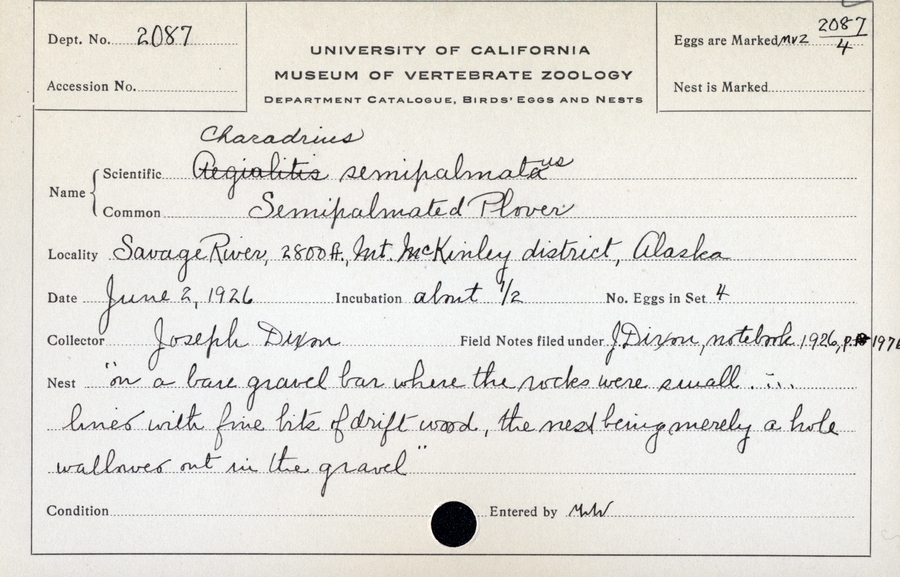 Dept. No. 2087
Accession No.
UNIVERSITY OF CALIFORNIA
MUSEUM OF VERTEBRATE ZOOLOGY
DEPARTMENT CATALOGUE, BIRDS' EGGS AND NESTS
Eggs are Marked MVZ 2087/4
Nest is Marked
Charadrius
Name { Scientific Aegialitis semipalmataus
Common Semipalmated Plover
Locality Savage River, 2800 ft., Mt. McKinley district, Alaska
Date June 2, 1926 Incubation about 1/2 No. Eggs in Set 4
Collector Joseph Dixon Field Notes filed under J. Dixon, notebook 1926, p. 1976
Nest "on a bare gravel bar where the rocks were small ....
lined with fine bits of drift wood, the nest being merely a hole
wallowed out in the gravel"
Condition Entered by